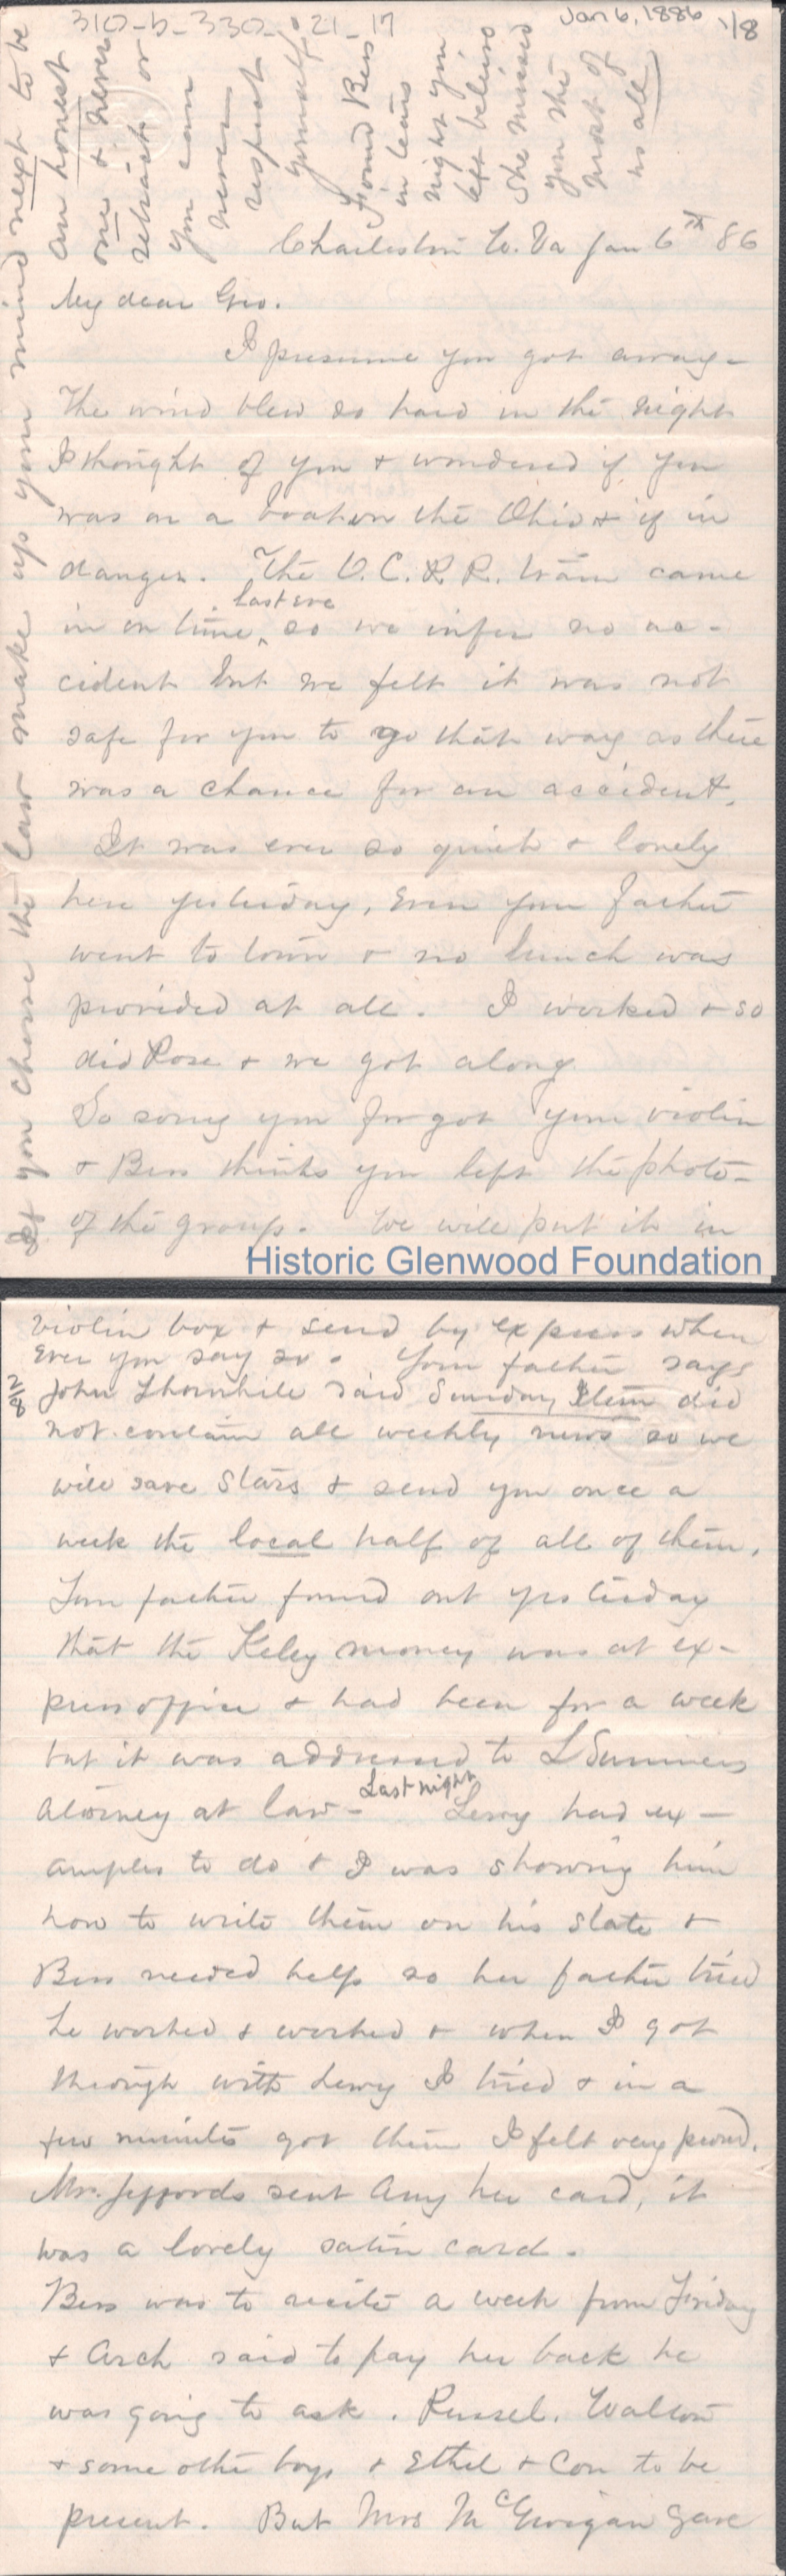 310-b-330-21-17
Jan 6, 1886 1/8
If you choose the law make up your mind next to be
an honest
one & never
retract or
you can
never
respect
yourself.
Found Bess
in tears
night you
left believe
she missed
you the
most of
us all
Charleston W. Va Jan 6th 86
My dear Geo.
I presume you got away -
The wind blew so hard in the night
I thought of you & wondered if you
was on a boat on the Ohio & if in
danger. The O. C. R. R. train came
last eve
in on time, so we infer no ac-
cident but we felt it was not
safe for you to go that way as there
was a chance for an accident.
It was ever so quiet & lonely
here yesterday, even your father
went to town & no lunch was
provided at all. I worked & so
did Rose & we got along
So sorry you forgot your violin
& Bess thinks you left the photo-
of the group. We will put it in
Historic Glenwood Foundation
violin box & send by express when
ever you say so. Your father says
2/8
John Thornhill said Sunday Item did
not contain all weekly news so we
will save Stars & send you once a
week the local half of all of them.
Your father found out yesterday
that the Keley money was at ex-
press office & had been for a week
but it was addressed to L Summers
Attorney at law - Last night Leroy had ex-
amples to do & I was showing him
how to write them on his slate &
Bess needed help so her father tried
he worked & worked & when I got
through with Leroy I tried & in a
few minutes got them I felt very proud.
Mr. Jeffords sent Amy her card, it
was a lovely satin card.
Bess was to recite a week from Friday
& Arch said to pay her back he
was going to ask. Russel. Walton
& some other boys & Ethel & Con to be
present. But Mrs McGwigan gave